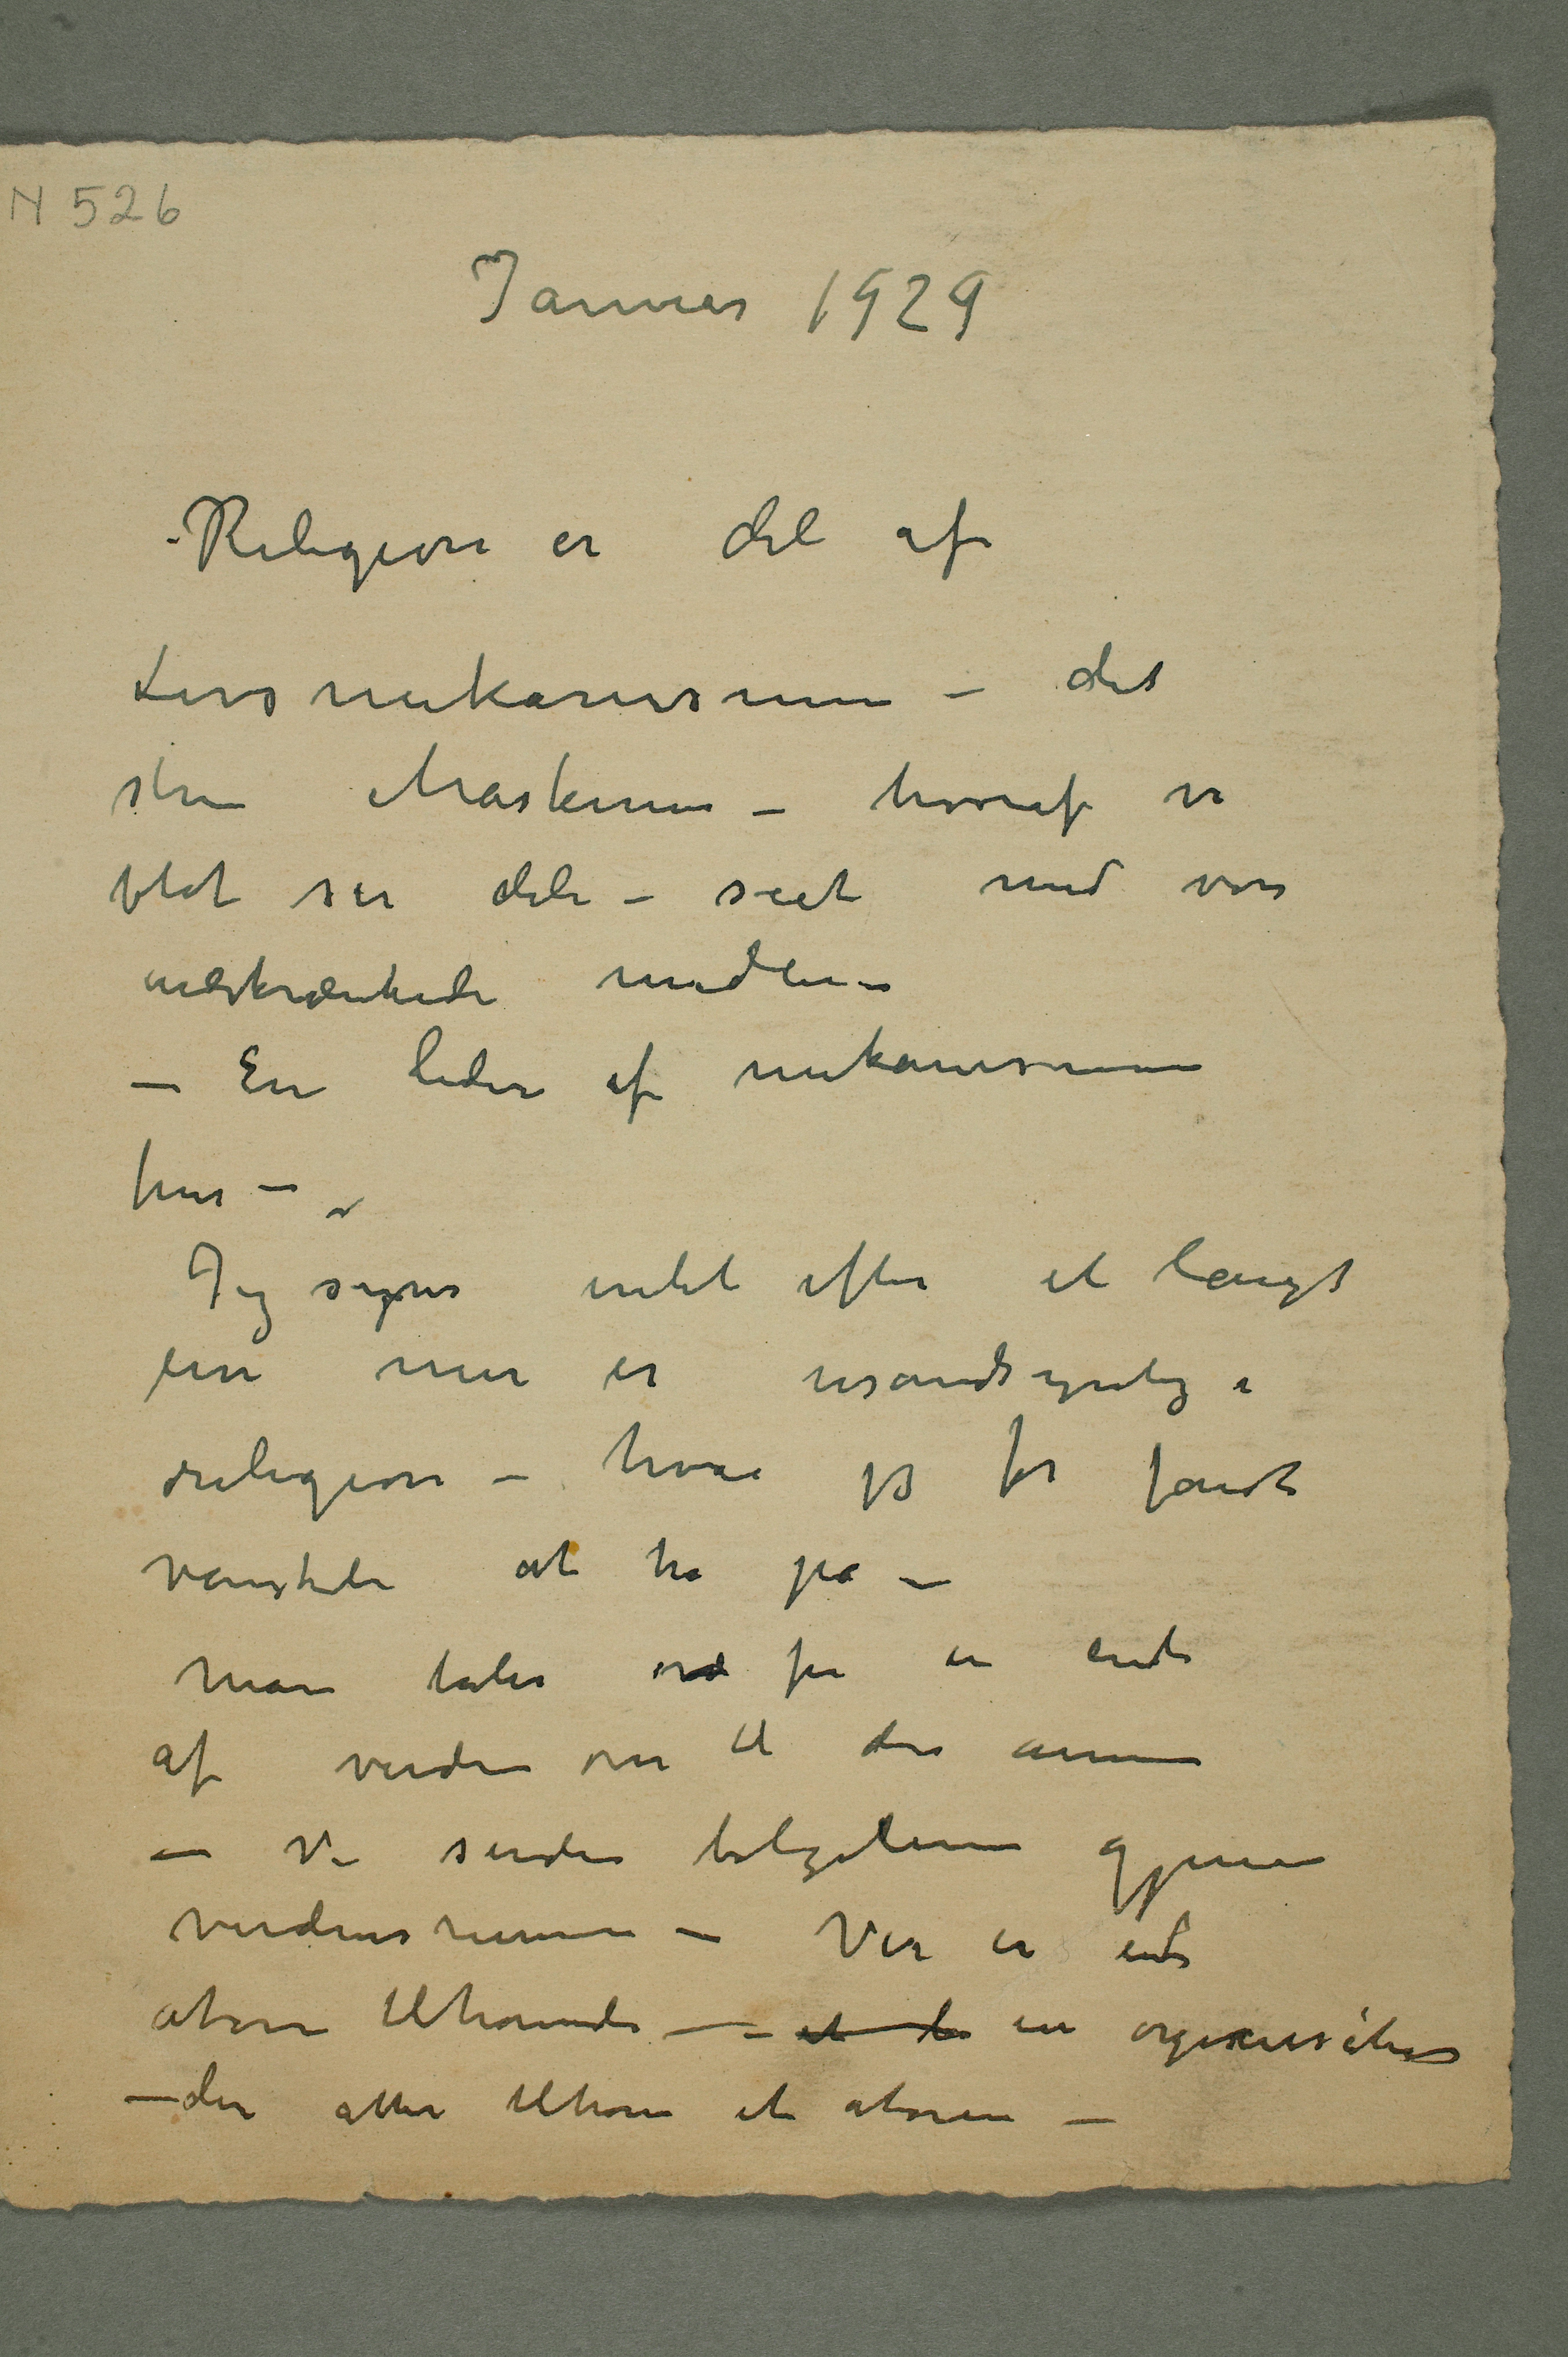 N 526
Januar 1929
– Religion er del af
Livsmekanismen – det
store Maskineri – hvoraf vi
blot ser dele – seet med vore
indskrænkede midler –
– En leder af mekanismen
Jeg synes intet efter et langt
liv mer er usandsynlig i
religion – hva jeg før fandt
vanskeli at tro på –
Man taler nå fra en ende
af verden over til den annen
– Vi sender bølgelinier gjennem
verdensrummet – Vi er ens
atomer tilhørende – et de en organisation
– der atter tilhører et atom –